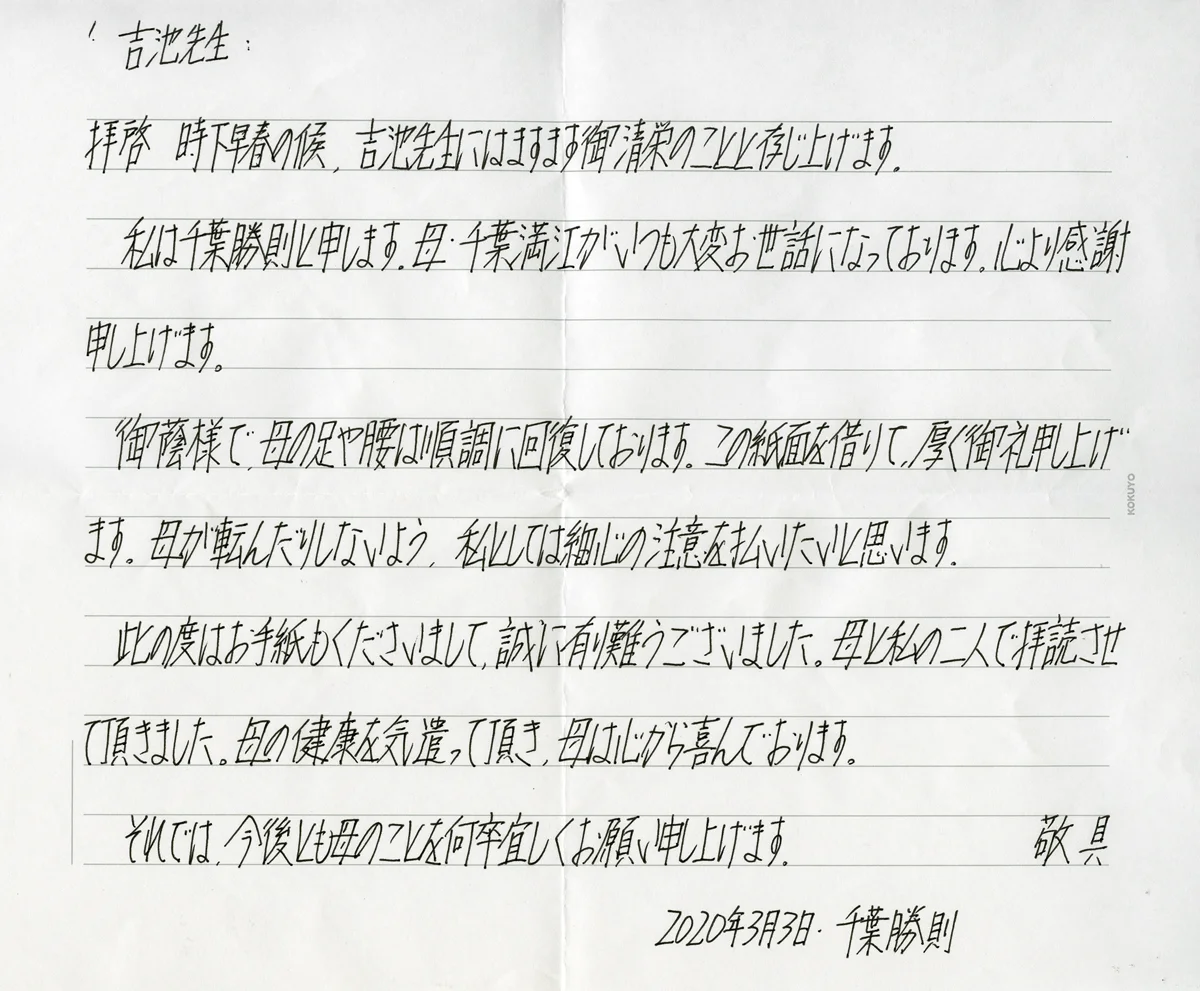 吉池先生:
拝啓 時下早春の候、吉池先生にはますます御清栄のことと存じ上げます。
私は千葉勝則と申します。母・千葉満江がいつも大変お世話になっております。心より感謝
申し上げます。
御蔭様で、母の足や腰は順調に回復しております。この紙面を借りて、厚く御礼申し上げ
ます。母が転んだりしないよう、私としては細心の注意を払いたいと思います。
此の度はお手紙もくださいまして、誠に有り難うございました。母と私の二人で拝読させ
て頂きました。母の健康を気遣って頂き、母は心から喜んでおります。
それでは、今後とも母のことを何卒宜しくお願い申し上げます。 敬具
2020年3月3日・千葉勝則
KOKUYO